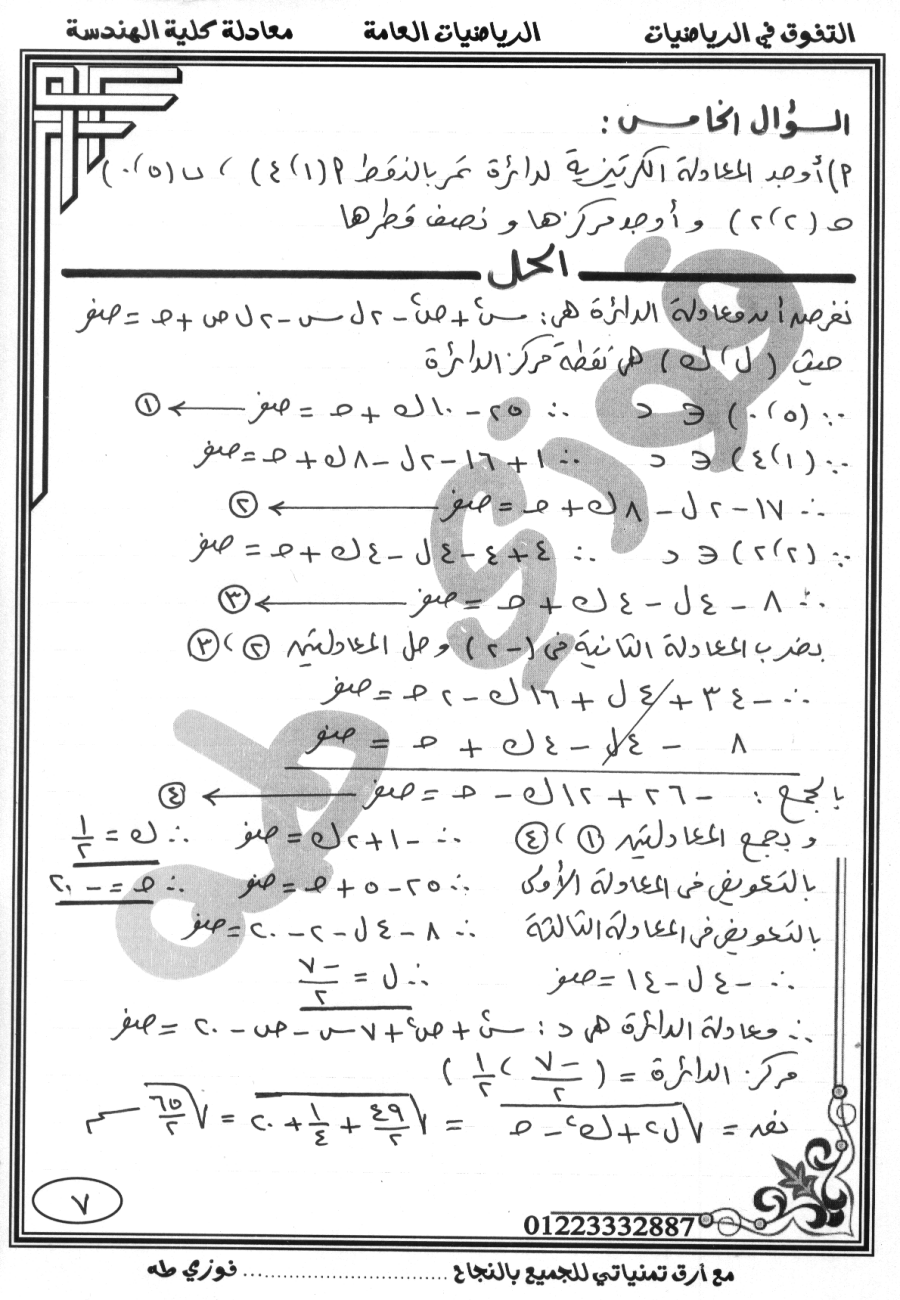 التفوق في الرياضيات الرياضيات العامة معادلة كلية الهندسة
السؤال الخامس :
٩) أوجد المعادلة الكرتيزية لدائرة تمر بالنقط ٩(١، ٤) ، ب(٥، ٠)
حـ (٢، ٢) و أوجد مركزها و نصف قطرها
الحل
نفرض أن معادلة الدائرة هى: س² + ص² - ٢ل س - ٢ل ص + حـ = صفر
حيث (ل، ك) هى نقطة مركز الدائرة
∵ (٠، ٥) ∈ د ∴ ٢٥ - ١٠ك + حـ = صفر ← ①
∵ (١، ٤) ∈ د ∴ ١ + ١٦ - ٢ل - ٨ك + حـ = صفر
∴ ١٧ - ٢ل - ٨ك + حـ = صفر ← ②
∵ (٢، ٢) ∈ د ∴ ٤ + ٤ - ٤ل - ٤ك + حـ = صفر
∴ ٨ - ٤ل - ٤ك + حـ = صفر ← ③
بضرب المعادلة الثانية فى (-٢) وحل المعادلتين ②، ③
∴ -٣٤ + ٤ل + ١٦ك - ٢حـ = صفر
٨ - ٤ل - ٤ك + حـ = صفر
بالجمع : -٢٦ + ١٢ك - حـ = صفر ← ④
و بجمع المعادلتين ①، ④ ∴ -١ + ٢ك = صفر ∴ ك = ١/٢
بالتعويض فى المعادلة الأولى ∴ ٢٥ - ٥ + حـ = صفر ∴ حـ = -٢٠
بالتعويض فى المعادلة الثالثة ∴ ٨ - ٤ل - ٢ - ٢٠ = صفر
∴ -٤ل - ١٤ = صفر ∴ ل = -٧/٢
∴ معادلة الدائرة هى د : س² + ص² + ٧س - ص - ٢٠ = صفر
مركز الدائرة = (-٧/٢ ، ١/٢)
نق = √(ل² + ك² - حـ) = √(٤٩/٢ + ١/٤ + ٢٠) = √(٦٥/٢)
٧
01223332887
مع أرق تمنياتي للجميع بالنجاح .................................. فوزي طه
فوزي طه